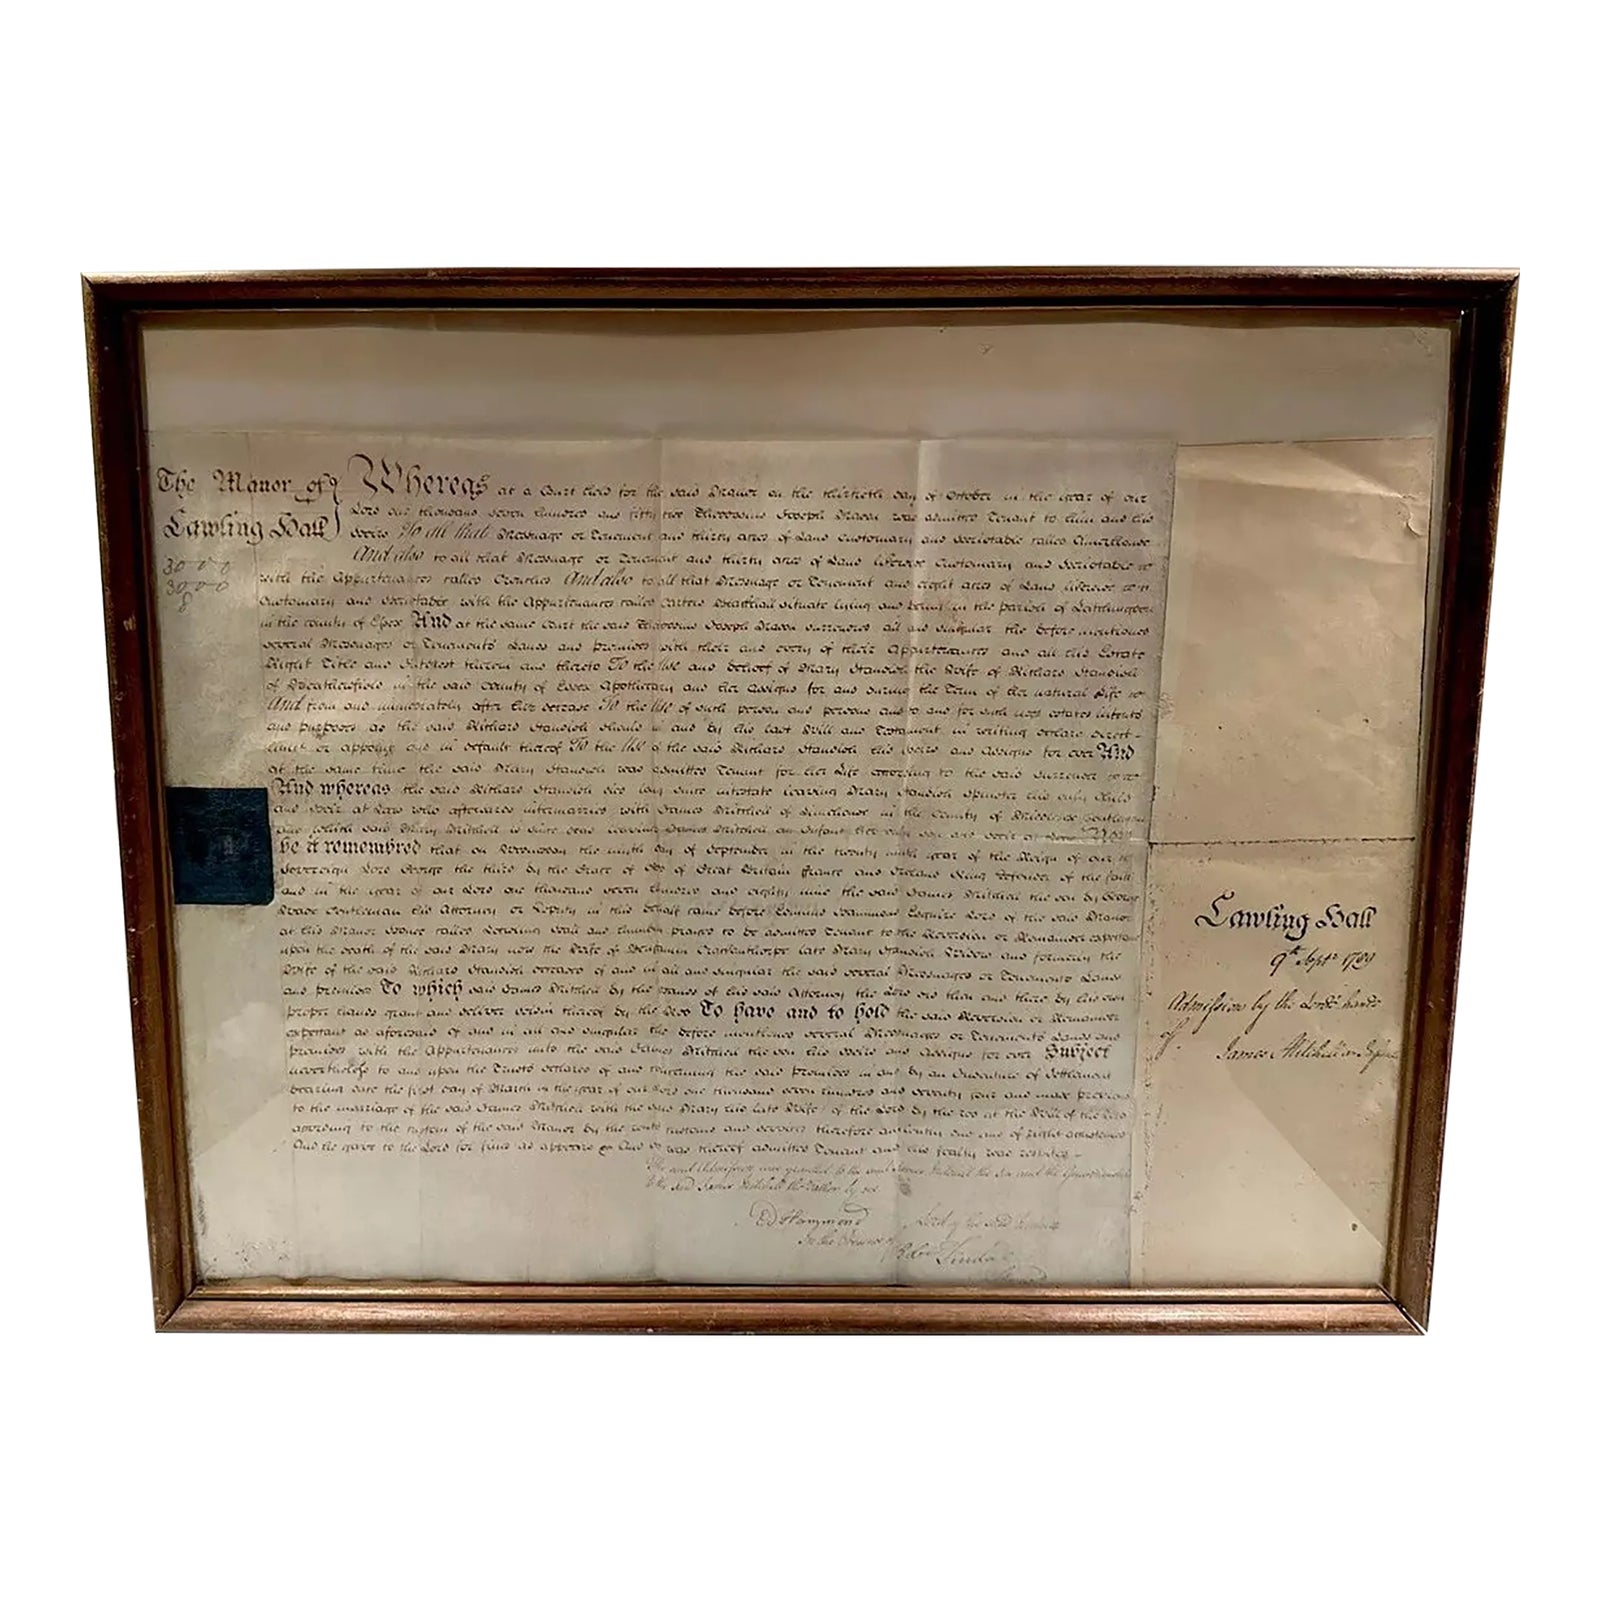 The Manor of
Lawling Hall
30 0 0
30 0 0
8
Whereas at a Court held for the said Manor on the thirtieth day of October in the year of our
Lord one thousand seven hundred and fifty two Joseph was admitted Tenant to him and his
Heirs To all that Messuage or Tenement and thirty acres of Land Customary and Heriotable called
And also to all that Messuage or Tenement and thirty acres of Land likewise Customary and Heriotable
with the Appurtenances called And also to all that Messuage or Tenement and eight acres of Land likewise
Customary and Heriotable with the Appurtenances called situate lying and being in the parish of Latchingdon
in the County of Essex And at the same Court the said Joseph surrendered all and singular the before mentioned
several Messuages or Tenements Lands and premises with their and every of their Appurtenances and all his Estate
Right Title and Interest therein and thereto To the Use and behoof of Mary the Wife of Richard
of Weathersfield in the said County of Essex Apothecary and her Assigns for and during the Term of her natural Life
And from and immediately after her decease To the Use of such person and persons and to and for such uses estates intents
and purposes as the said Richard should in and by his last Will and Testament in writing declare direct
limit or appoint and in default thereof To the Use of the said Richard his heirs and Assigns for ever And
at the same time the said Mary was admitted Tenant for her Life according to the said Surrender
And whereas the said Richard died long since intestate leaving Mary Spinster his only Child
and Heir at Law who afterwards intermarried with James Mitchell of in the County of Middlesex Gentleman
and which said Mary Mitchell is since dead leaving James Mitchell an Infant her only son and heir at Law Now
be it remembred that on Wednesday the ninth day of September in the twenty ninth year of the Reign of our
Sovereign Lord George the third by the Grace of God of Great Britain France and Ireland King Defender of the faith
and in the year of our Lord one thousand seven hundred and eighty nine the said James Mitchell the son by George
Wade Gentleman his Attorney or Deputy in this behalf came before Hammond Esquire Lord of the said Manor
at his Manor House called Lawling Hall and humbly prayed to be admitted Tenant to the Reversion or Remainder expectant
upon the death of the said Mary now the Wife of Benjamin late Mary Widow and formerly the
Wife of the said Richard deceased of and in all and singular the said several Messuages or Tenements Lands
and premises To which said James Mitchell by the hands of his said Attorney the Lord did then and there by his own
proper hands grant and deliver seisin thereof by the Rod To have and to hold the said Reversion or Remainder
expectant as aforesaid of and in all and singular the before mentioned several Messuages or Tenements Lands and
premises with the Appurtenances unto the said James Mitchell the son his Heirs and Assigns for ever Subject
nevertheless to and upon the Trusts declared of and concerning the said premises in and by an Indenture of Settlement
bearing date the first day of March in the year of our Lord one thousand seven hundred and seventy four and made previous
to the marriage of the said James Mitchell with the said Mary his late Wife of the Lord by the rod at the Will of the Lord
according to the custom of the said Manor by the rents customs and services therefore anciently due and of right accustomed
And he gave to the Lord for fine as appears And so was thereof admitted Tenant and his fealty was respited
The said Admission was granted to the said James Mitchell the Son and the Guardianship
to the said James Mitchell the Father by me
Ed Hammond Lord of the said Manor
In the Presence of
Lawling Hall
9th Septr. 1789
Admission by the Lords hands
of
James Mitchell an Infant